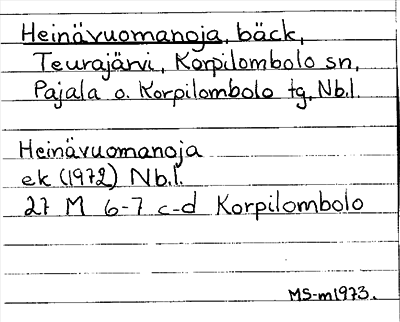 Heinävuomanoja, bäck,
Teurajärvi, Korpilombolo sn,
Pajala o. Korpilombolo tg, Nb.l.
Heinävuomanoja
ek (1972) Nb.l.
27 M 6-7 c-d Korpilombolo
MS-m1973.